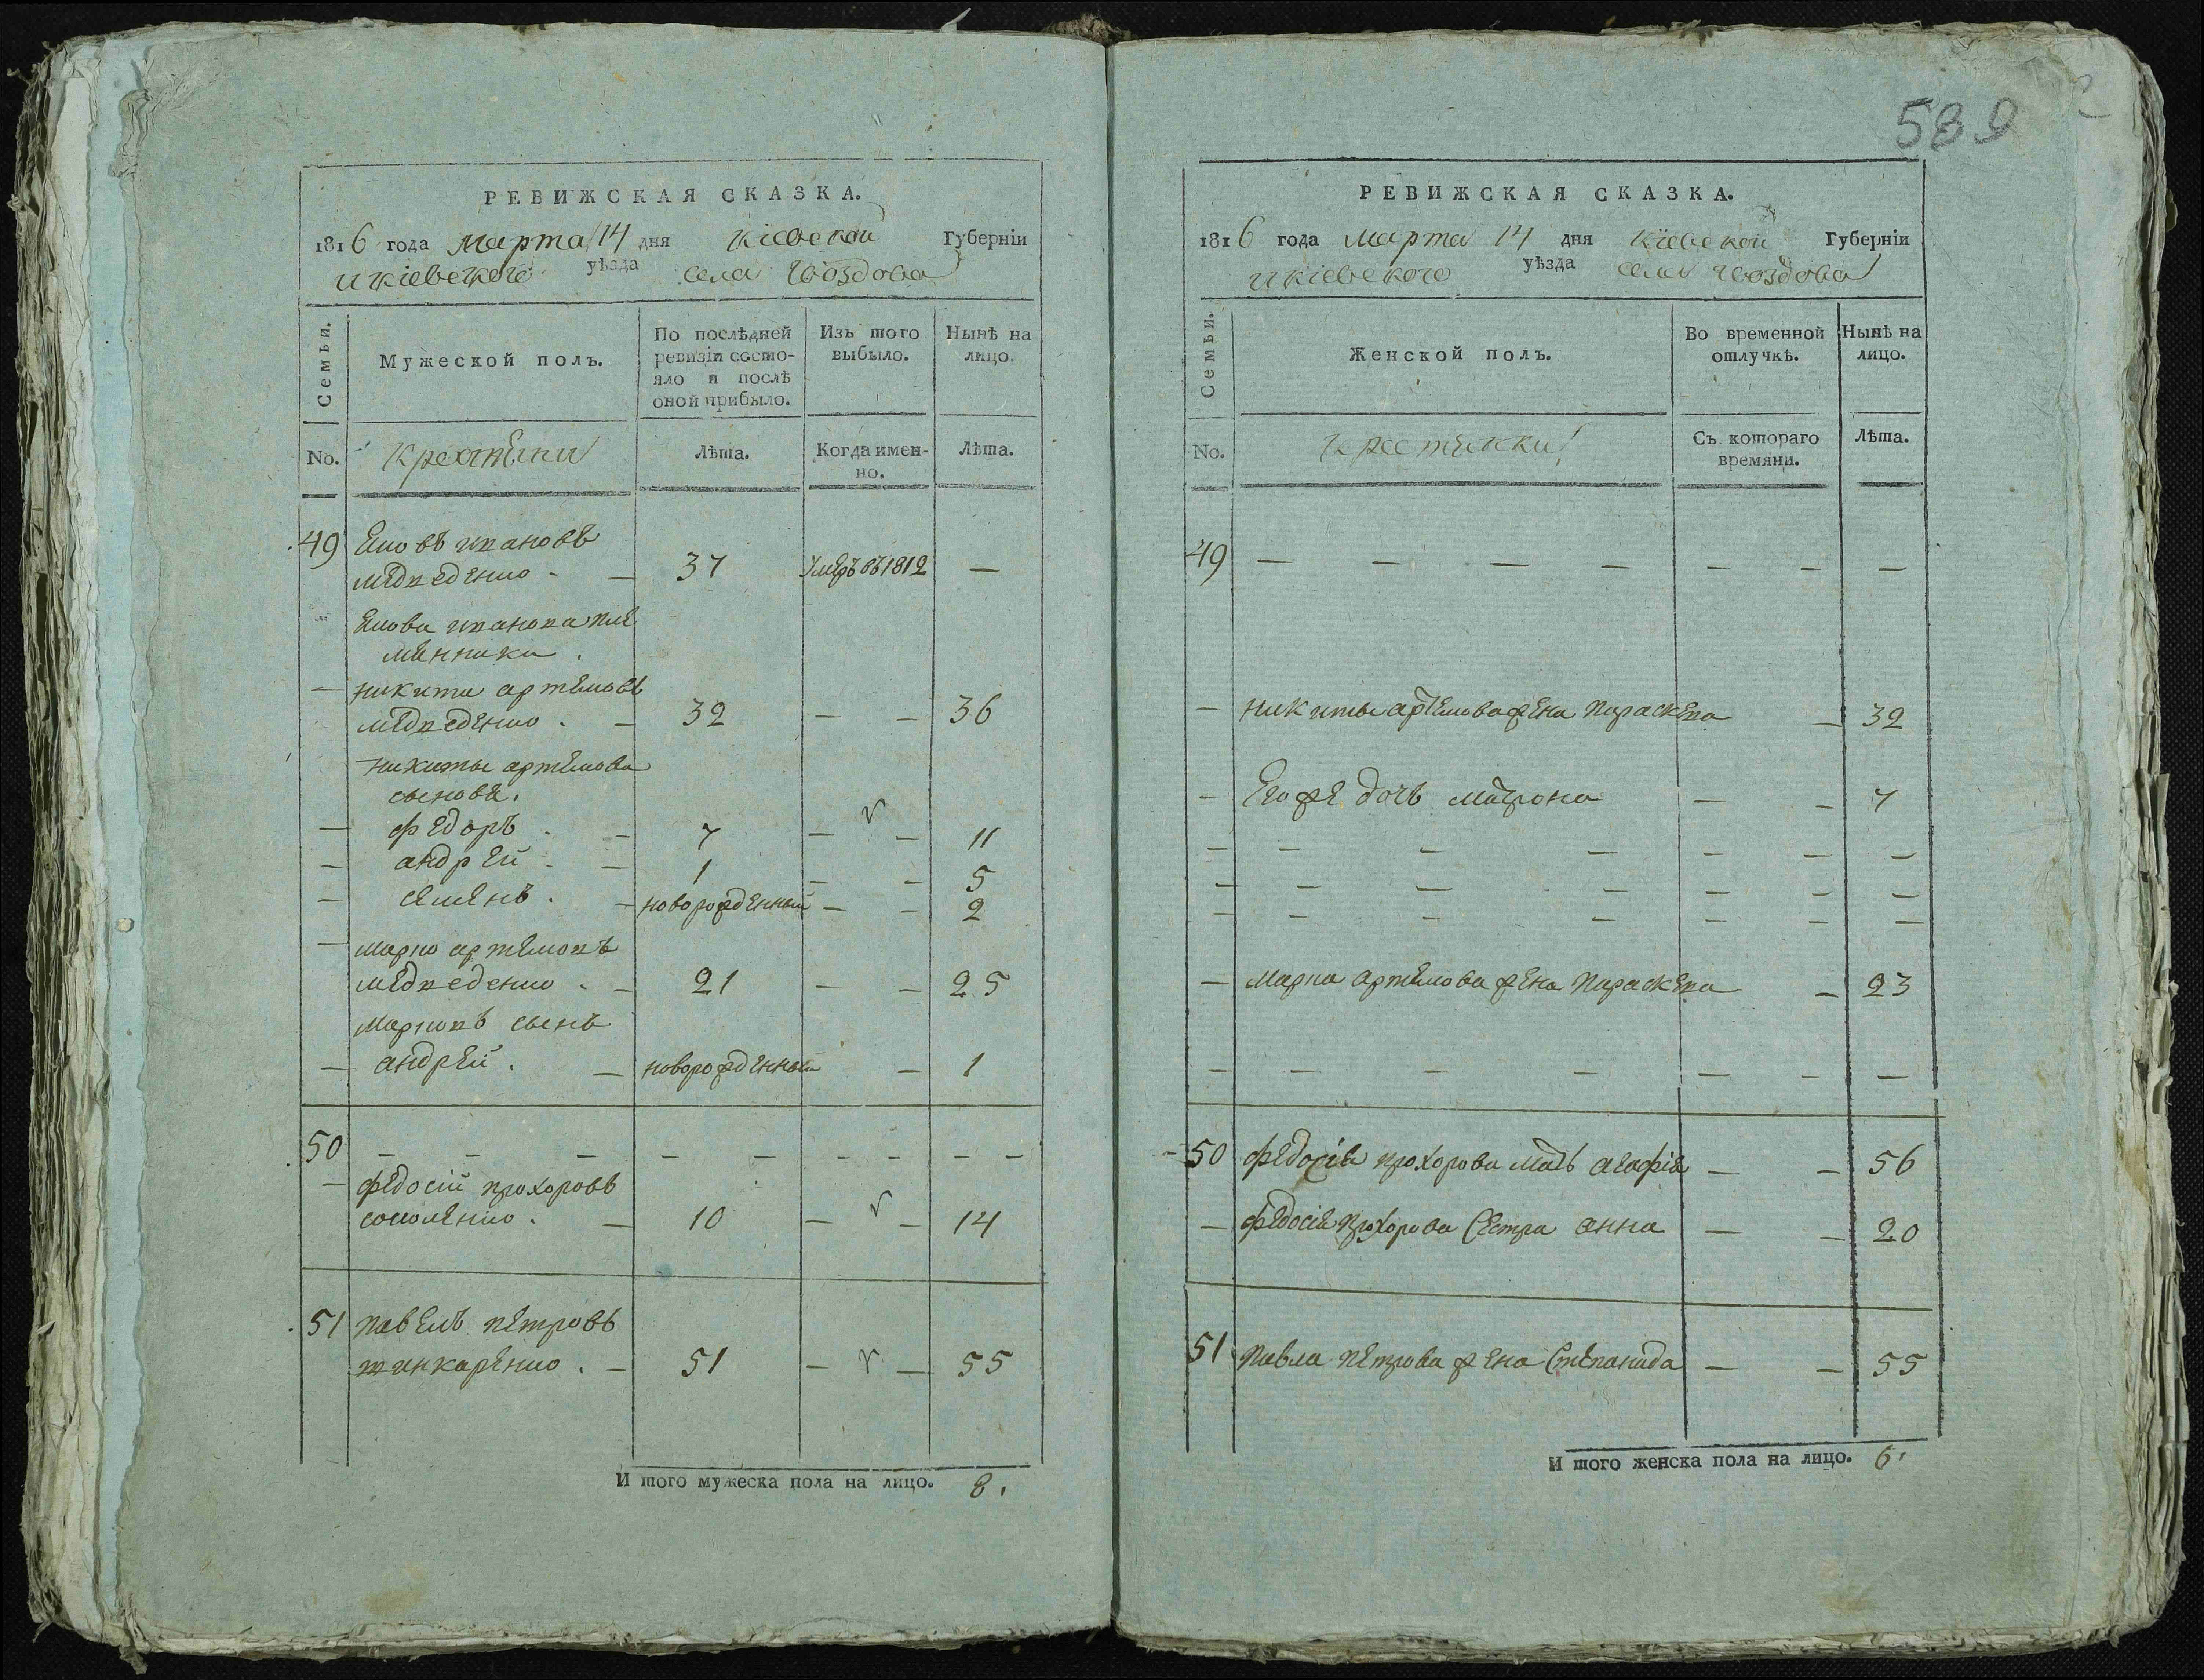 589
РЕВИЖСКАЯ СКАЗКА.
1816 года марта 14 дня Кіевской Губерніи
и кіевского уѣзда села Гвоздова
Семьи.
Мужеской полъ.
По послѣдней
ревизіи состо-
яло и послѣ
оной прибыло.
Изъ того
выбыло.
Нынѣ на
лицо.
No.
Крестяни
Лѣта.
Когда имен-
но.
Лѣта.
49 ивановъ
медведенко - 37 умеръ въ 1812 —
иванова пле
менники
никита артемовъ
медведенко - 32 — — 36
никиты артемова
сыновя.
федоръ - 7 — — 11
андрей - 1 — — 5
семенъ - новорожденный — — 2
марко артемовъ
медведенко - 21 — — 25
марковъ сынъ
андрей - новорожденный — 1
50 — — — — — — — — —
федосій прохоровъ
соколенко - 10 — — 14
51 павелъ петровъ
шинкаренко - 51 — — 55
И того мужеска пола на лицо. 8.
РЕВИЖСКАЯ СКАЗКА.
1816 года марта 14 дня Кіевской Губерніи
и кіевского уѣзда села Гвоздова
Семьи.
Женской полъ.
Во временной
отлучкѣ.
Нынѣ на
лицо.
No.
Крестянки
Съ котораго
времяни.
Лѣта.
49 — — — — — — —
никиты артемова жена параскева — 32
Его же дочь матрона — — 7
марка артемова жена параскева — 23
50 федосія прохорова мать агафія — — 56
федосія прохорова сестра анна — — 20
51 павла петрова жена степанида — — 55
И того женска пола на лицо. 6.